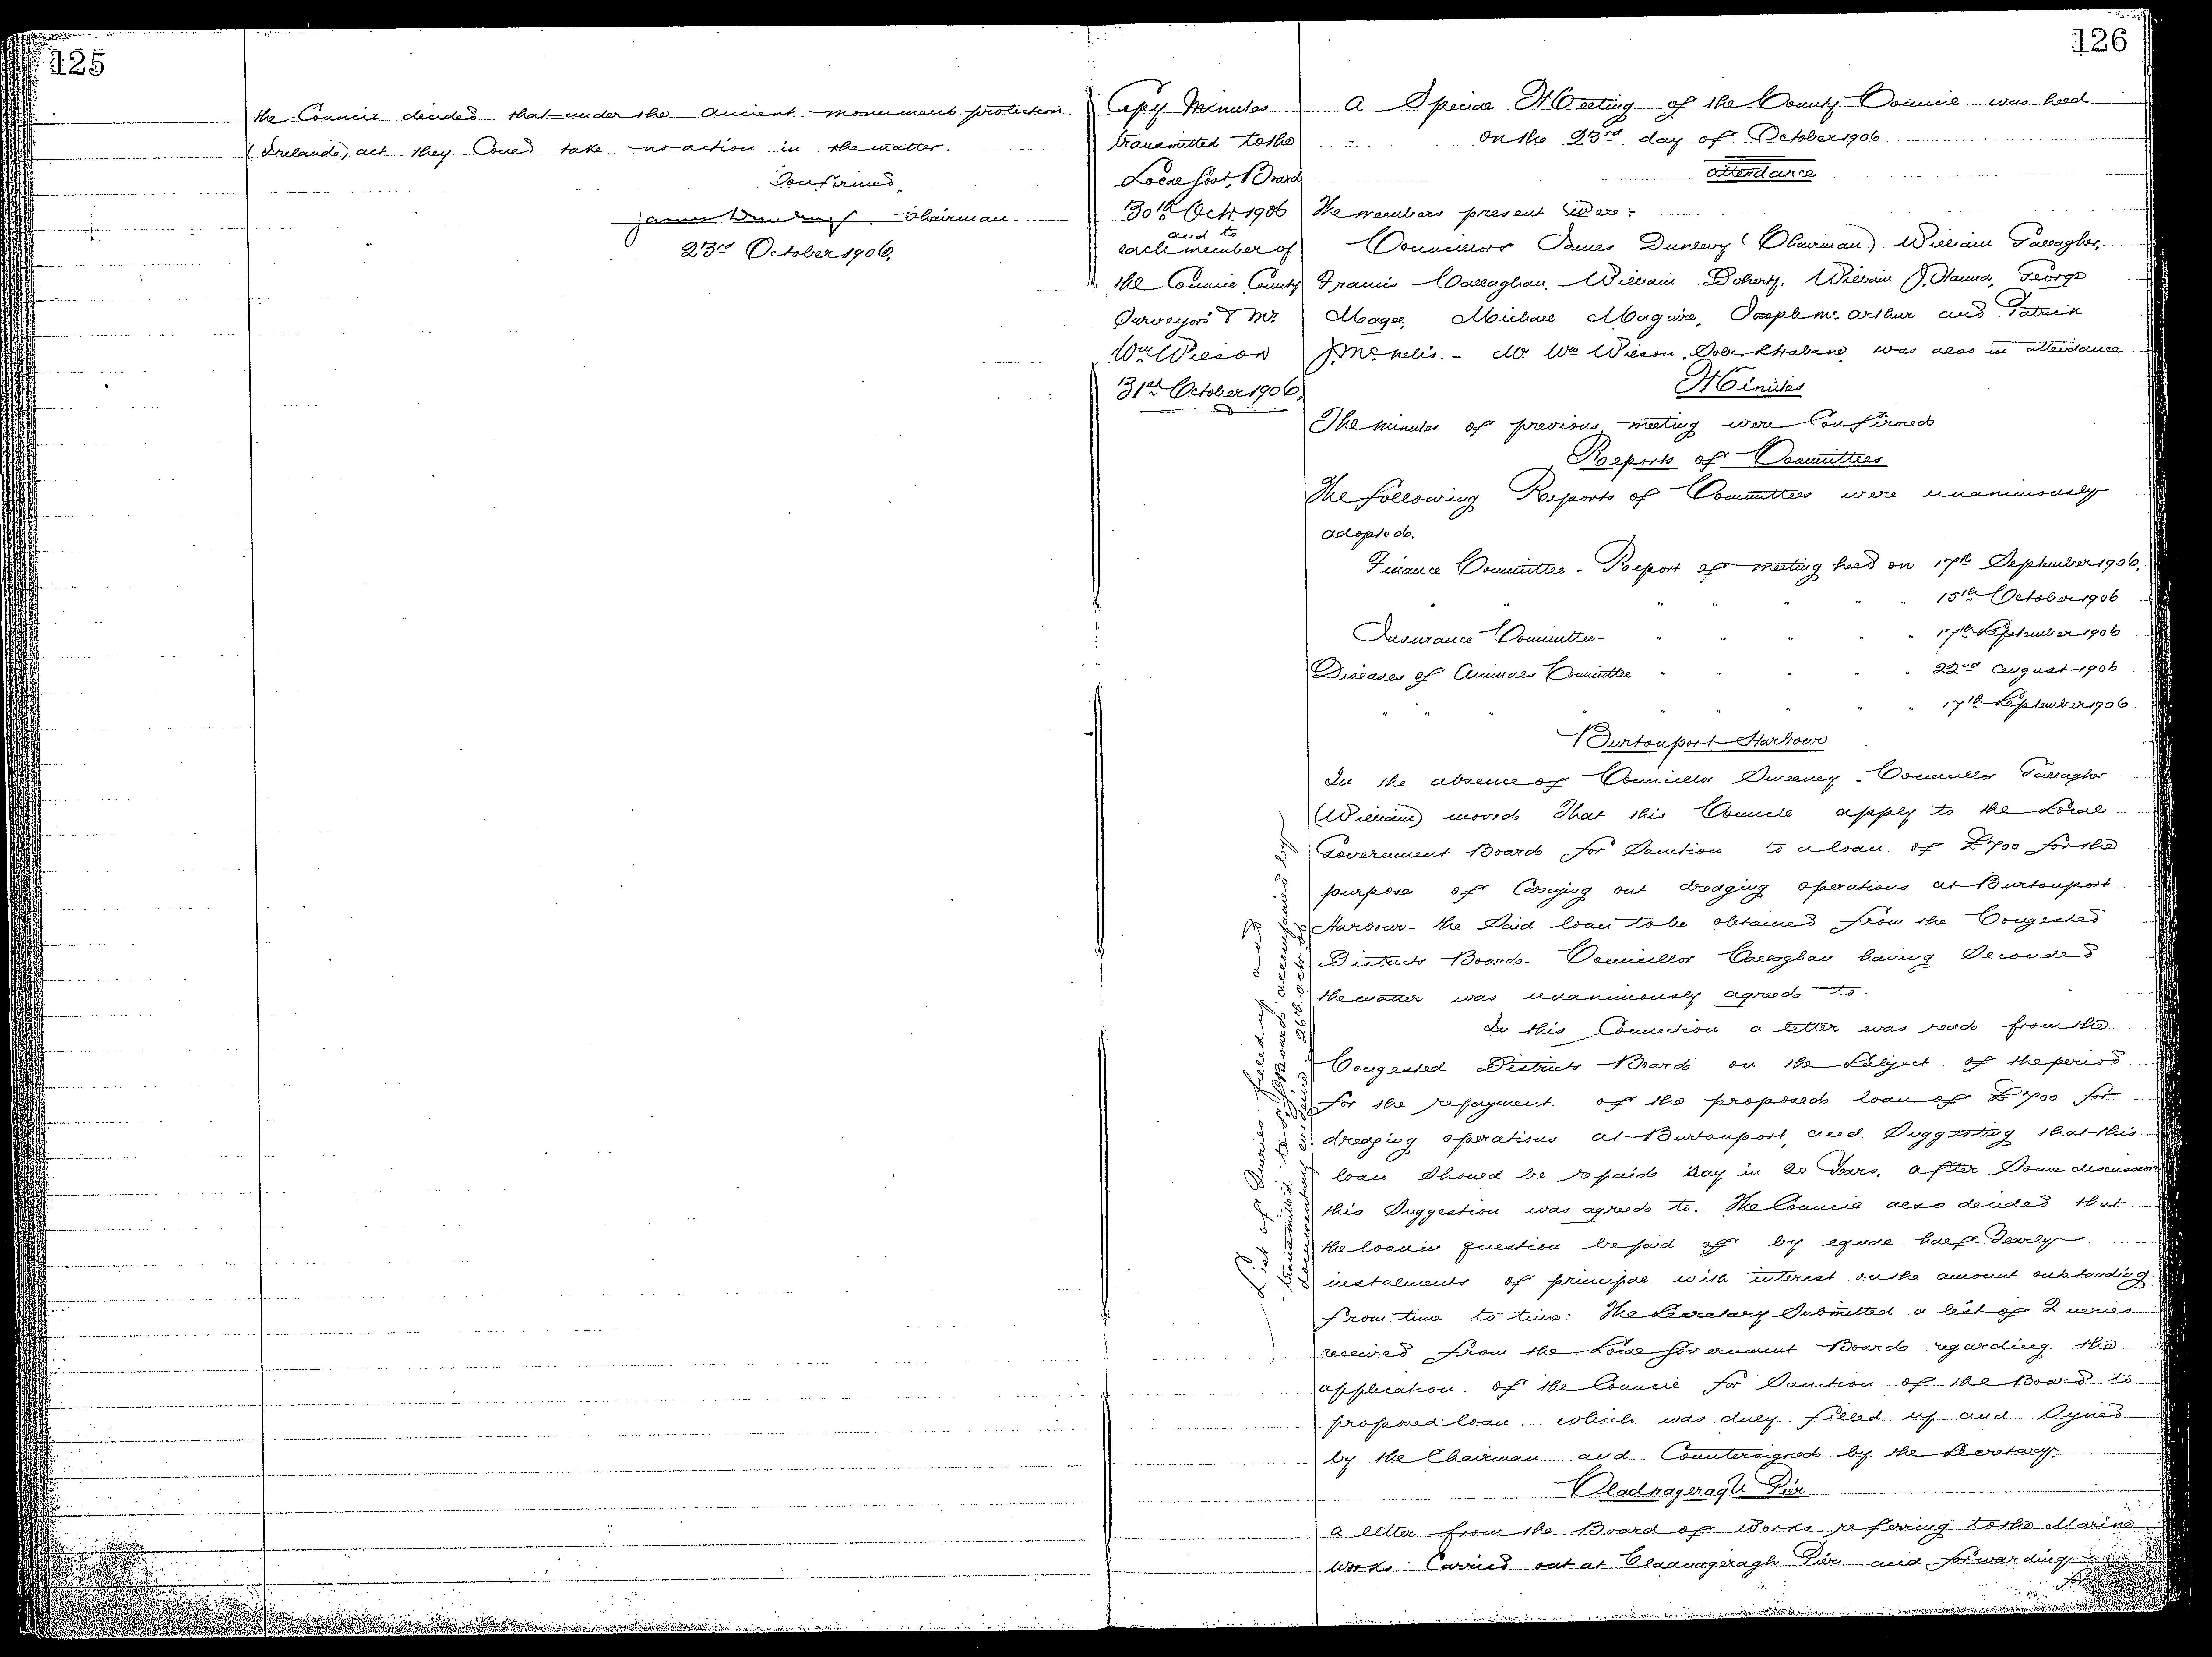 125
the Council decided that under the ancient monument protection
(Ireland) act they Could take no action in the matter.
Confirmed,
James Dunlevy Chairman
23rd October 1906.
126
Copy Minutes
transmitted to the
Local Govt. Board
30th Octr. 1906
and to
each member of
the Council County
Surveyors & Mr.
Wm Wilson
31st October 1906.
A Special Meeting of the County Council was held
on the 23rd day of October 1906
Attendance
The members present were:
Councillors James Dunlevy (Chairman) William Gallagher,
Francis Callaghan, William Doherty, William J. Hanna, George
Magee, Michael Maguire, Joseph McArthur and Patrick
J. McNelis. - Mr Wm Wilson, Solr. Strabane, was also in attendance
Minutes
The minutes of previous meeting were Confirmed
Reports of Committees
The following Reports of Committees were unanimously
adopted.
Finance Committee - Report of meeting held on 17th September 1906.
" " " " " " " 15th October 1906
Insurance Committee - " " " " " 17th September 1906
Diseases of Animals Committee " " " " " 22nd August 1906
" " " " " " " " 17th September 1906
Burtonport Harbour
In the absence of Councillor Sweeney - Councillor Gallagher
(William) moved That this Council apply to the Local
Government Board for Sanction to a loan of £700 for the
purpose of Carrying out dredging operations at Burtonport
Harbour - the Said loan to be obtained from the Congested
Districts Board - Councillor Callaghan having Seconded
the matter was unanimously agreed to.
In this Connection a letter was read from the
Congested Districts Board on the Subject of the period
for the repayment of the proposed loan of £700 for
dredging operations at Burtonport, and Suggesting that this
loan Should be repaid Say in 20 Years. After Some discussion
this Suggestion was agreed to. The Council also decided that
the loan in question be paid off by equal half-Yearly
instalments of principal with interest on the amount outstanding
from time to time. The Secretary Submitted a list of Queries
received from the Local Government Board regarding the
application of the Council for Sanction of the Board to
proposed loan which was duly filled up and Signed
by the Chairman and Countersigned by the Secretary.
List of Queries filled up and
transmitted to Board accompanied by
documentary evidence 26th Octr 06
Cladnageragh Pier
A letter from the Board of Works referring to the Marine
Works Carried out at Cladnageragh Pier and forwarding
for